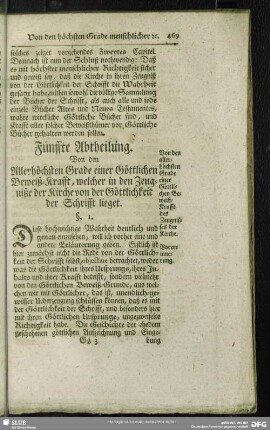 Von den höchsten Grade menschlicher ꝛc. 469
solches zeiget vorgehendes Zweytes Capitel.
Dannach ist nun der Schluß nothwendig: Daß
es mit höchster menschlicher Richtigkeit sicher
und gewiß sey, daß die Kirche in ihren Zeugniß
von der Göttlichkeit der Schrifft die Wahrheit
gesaget habe, mithin sowohl die völlige Sammlung
der Bücher der Schrifft, als auch alle und jede
einzele Bücher Alten und Neuen Testamentes,
wahre würckliche Göttliche Bücher sind, und
Krafft aller solcher Beweißthümer vor Göttliche
Bücher gehalten werden sollen.
Fünffte Abtheilung.
Von den
Allerhöchsten Grade einer Göttlichen
Beweiß-Krafft, welcher in den Zeug-
nisse der Kirche von der Göttlichkeit
der Schrifft lieget.
Von den
aller-
höchsten
Grade
einer
Göttli-
cher Be-
weiß-
Krafft
des
Zeugnis-
ses der
Kirche.
§. 1.
Diese hochwichtige Wahrheit deutlich und
genau einzusehen, will ich vorher eine und
andere Erläuterung geben. Erstlich ist
hier zunächst nicht die Rede von der Göttlich-
keit der Schrifft selbst, objective betrachtet, woher
was die Göttlichkeit ihres Ursprunges, ihres Jn-
haltes und ihrer Krafft betrifft, sondern vielmehr
von den Göttlichen Beweiß-Grunde, aus wel-
chen wir mit Göttlicher, das ist, unendlich-ge-
wisser Ueberzeugung schlüssen können, daß es mit
der Göttlichkeit der Schrifft, und besonders hier
mit ihren Göttlichen Ursprunge, ungezweifelte
Richtigkeit habe. Die Geschichte der ehedem
geschehenen göttlichen Aufzeichnung und Einge-
Gg 3 bung